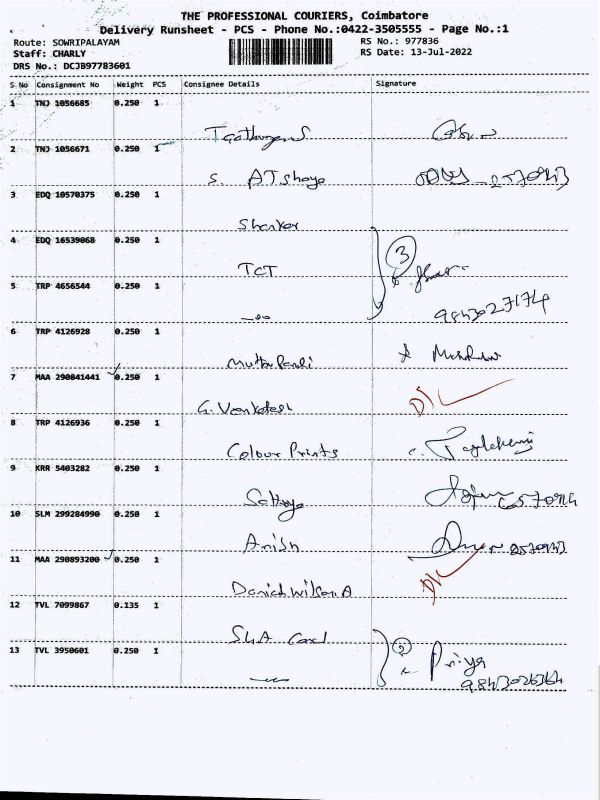 THE PROFESSIONAL COURIERS, Coimbatore
Delivery Runsheet - PCS - Phone No.:0422-3505555 - Page No.:1
Route: SOWRIPALAYAM RS No.: 977836
Staff: CHARLY RS Date: 13-Jul-2022
DRS No.: DCJB97783601
S No Consignment No Weight PCS Consignee Details Signature
1 TNJ 1056685 0.250 1
2 TNJ 1056671 0.250 1
S.
3 EDQ 10570375 0.250 1
Shanker
4 EDQ 16539068 0.250 1
TCT
3
5 TRP 4656544 0.250 1
9843027174
6 TRP 4126928 0.250 1
7 MAA 290841441 0.250 1
G. Venkatesh D/L
8 TRP 4126936 0.250 1
Colour Prints
9 KRR 5403282 0.250 1
Sathya
10 SLM 299284990 0.250 1
Anish
11 MAA 290893200 0.250 1
Daniel Wilson A D/L
12 TVL 7099867 0.135 1
Card
2
13 TVL 3950601 0.250 1
Priya